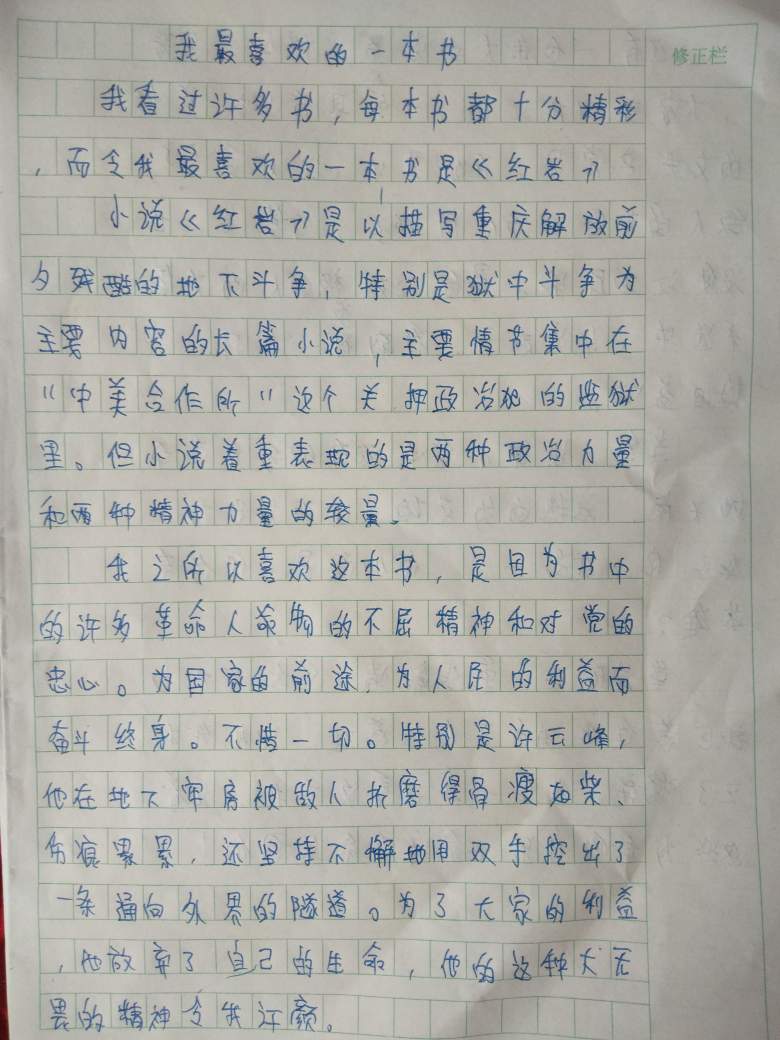 我最喜欢的一本书
修正栏
我看过许多书，每本书都十分精彩
，而令我最喜欢的一本书是《红岩》
小说《红岩》是以描写重庆解放前
夕残酷的地下斗争，特别是狱中斗争为
主要内容的长篇小说，主要情节集中在
“中美合作所”这个关押政治犯的监狱
里。但小说着重表现的是两种政治力量
和两种精神力量的较量。
我之所以喜欢这本书，是因为书中
的许多革命人物的不屈精神和对党的
忠心。为国家的前途，为人民的利益而
奋斗终身。不惜一切。特别是许云峰，
他在地下牢房被敌人折磨得骨瘦如柴、
伤痕累累，还坚持不懈地用双手挖出了
一条通向外界的隧道。为了大家的利益
，他放弃了自己的生命，他的这种大无
畏的精神令我汗颜。